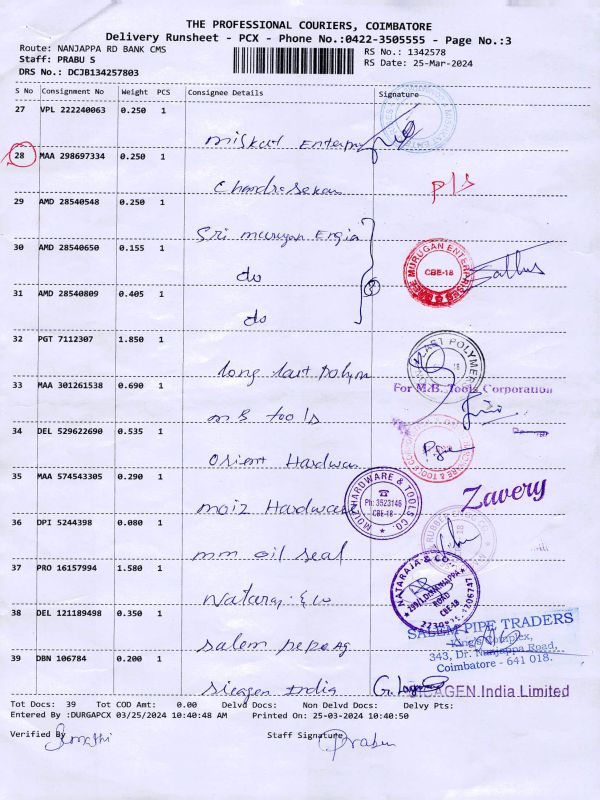 THE PROFESSIONAL COURIERS, COIMBATORE
Delivery Runsheet - PCX - Phone No.:0422-3505555 - Page No.:3
Route: NANJAPPA RD BANK CMS RS No.: 1342578
Staff: PRABU S RS Date: 25-Mar-2024
DRS No.: DCJB134257803
S No Consignment No Weight PCS Consignee Details Signature
27 VPL 222240063 0.250 1
28 MAA 298697334 0.250 1
Chandrasekan P/S
29 AMD 28540548 0.250 1
Sri murugan Engia
30 AMD 28540650 0.155 1
do
SREE MURUGAN ENTERPRISES CBE-18
31 AMD 28540809 0.405 1
3
do
32 PGT 7112307 1.850 1
long last polym
33 MAA 301261538 0.690 1
For M.B. Tools Corporation
m B tools
34 DEL 529622690 0.535 1
Orient Hardwar
35 MAA 574543305 0.290 1
Zavery
moiz Hardware
MOIZ HARDWARE & TOOLS CO. Ph: 3523146 CBE-18
36 DPI 5244398 0.080 1
mm oil seal
37 PRO 16157994 1.580 1
NATARAJA & CO. ROAD CBE-18
Nataraj & co
38 DEL 121189498 0.350 1
SALEM PIPE TRADERS
King's Complex,
343, Dr. Nanjappa Road,
Coimbatore - 641 018.
salem pepe Ag
39 DBN 106784 0.200 1
sicagen India SICAGEN India Limited
Tot Docs: 39 Tot COD Amt: 0.00 Delvd Docs: Non Delvd Docs: Delvy Pts:
Entered By :DURGAPCX 03/25/2024 10:40:48 AM Printed On: 25-03-2024 10:40:50
Verified By Staff Signature
Prabu